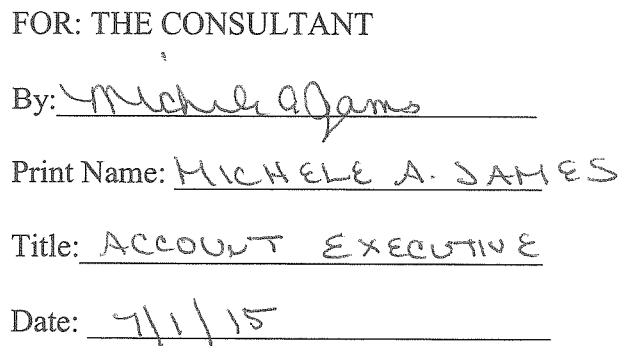 FOR: THE CONSULTANT
By: Michele A James
Print Name: MICHELE A. JAMES
Title: ACCOUNT EXECUTIVE
Date: 7/1/15